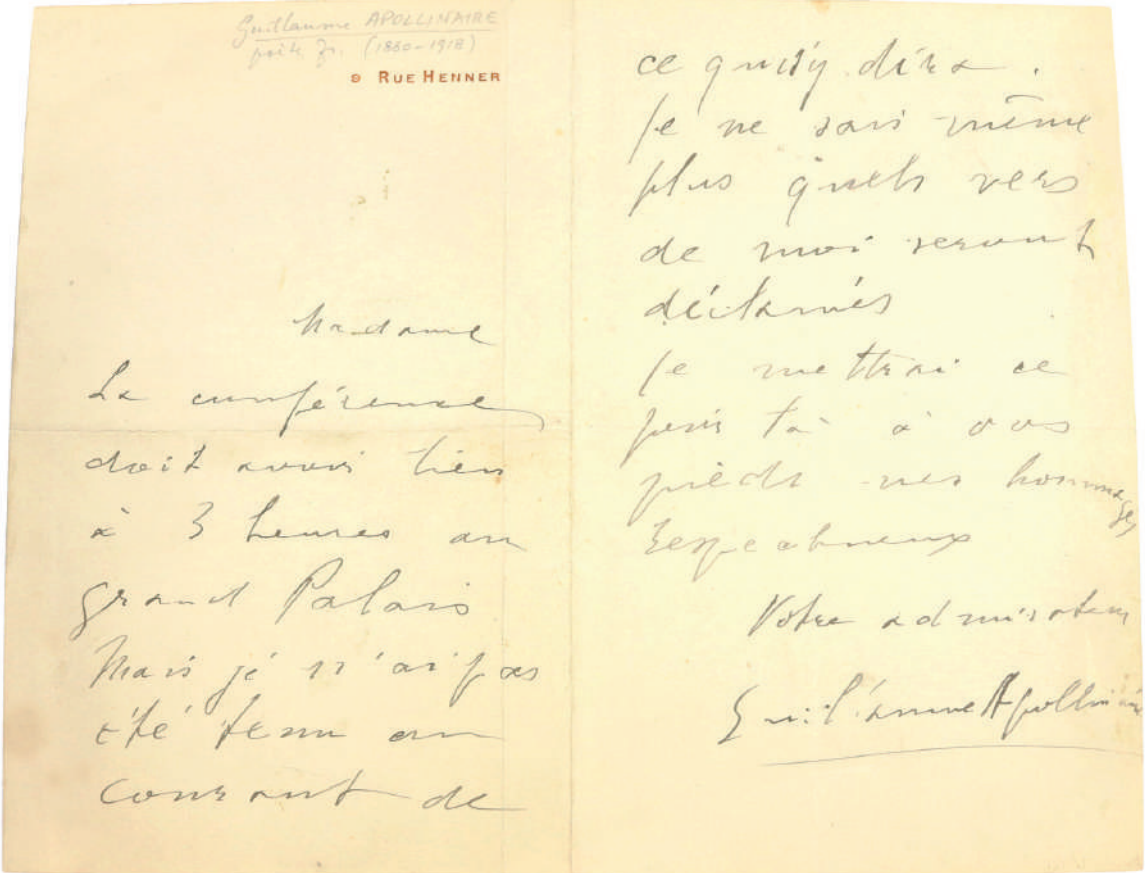 Guillaume APOLLINAIRE
poète fr. (1880-1918)
9 RUE HENNER
Madame
La conférence
doit avoir lieu
à 3 heures au
grand Palais
Mais je n'ai pas
été tenu au
courant de
ce qui s'y dira.
Je ne sais même
plus quels vers
de moi seront
déclamés
Je mettrai ce
jour là à vos
pieds mes hommages
respectueux
Votre admirateur
Guillaume Apollinaire